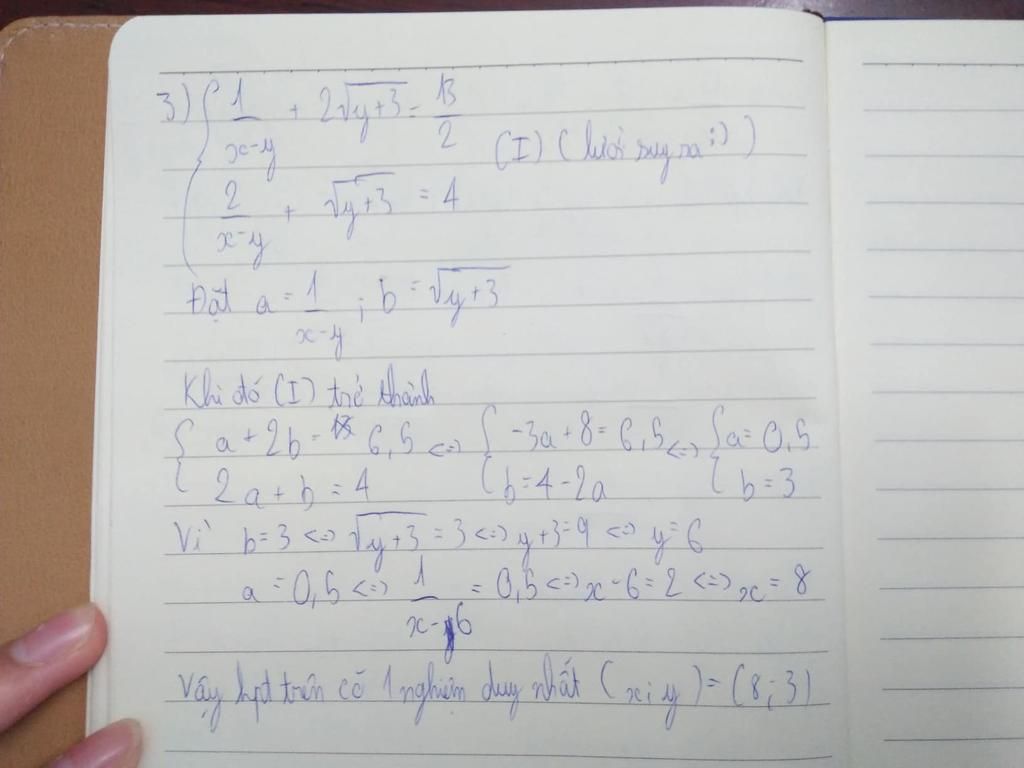 3) { 1/(x-y) + 2√(y+3) = 13/2
(I) (lười suy ra :) )
2/(x-y) + √(y+3) = 4
Đặt a = 1/(x-y) ; b = √(y+3)
Khi đó (I) trở thành
{ a + 2b = 6,5 <=> { -3a + 8 = 6,5 <=> { a = 0,5
{ 2a + b = 4 { b = 4 - 2a { b = 3
Vì b = 3 <=> √(y+3) = 3 <=> y + 3 = 9 <=> y = 6
a = 0,5 <=> 1/(x-6) = 0,5 <=> x - 6 = 2 <=> x = 8
Vậy hpt trên có 1 nghiệm duy nhất (x ; y) = (8 ; 3)